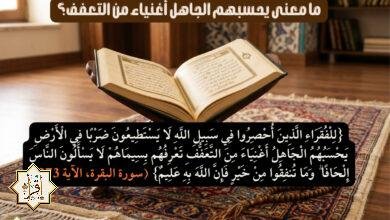 ما معنى يحسبهم الجاهل أغنياء من التعفف؟
{لِلْفُقَرَاءِ الَّذِينَ أُحْصِرُوا فِي سَبِيلِ اللَّهِ لَا يَسْتَطِيعُونَ ضَرْبًا فِي الْأَرْضِ
يَحْسَبُهُمُ الْجَاهِلُ أَغْنِيَاءَ مِنَ التَّعَفُّفِ تَعْرِفُهُمْ بِسِيمَاهُمْ لَا يَسْأَلُونَ النَّاسَ
إِلْحَافًا ۗ وَمَا تُنفِقُوا مِنْ خَيْرٍ فَإِنَّ اللَّهَ بِهِ عَلِيمٌ} (سورة البقرة، الآية 3
اقرأ